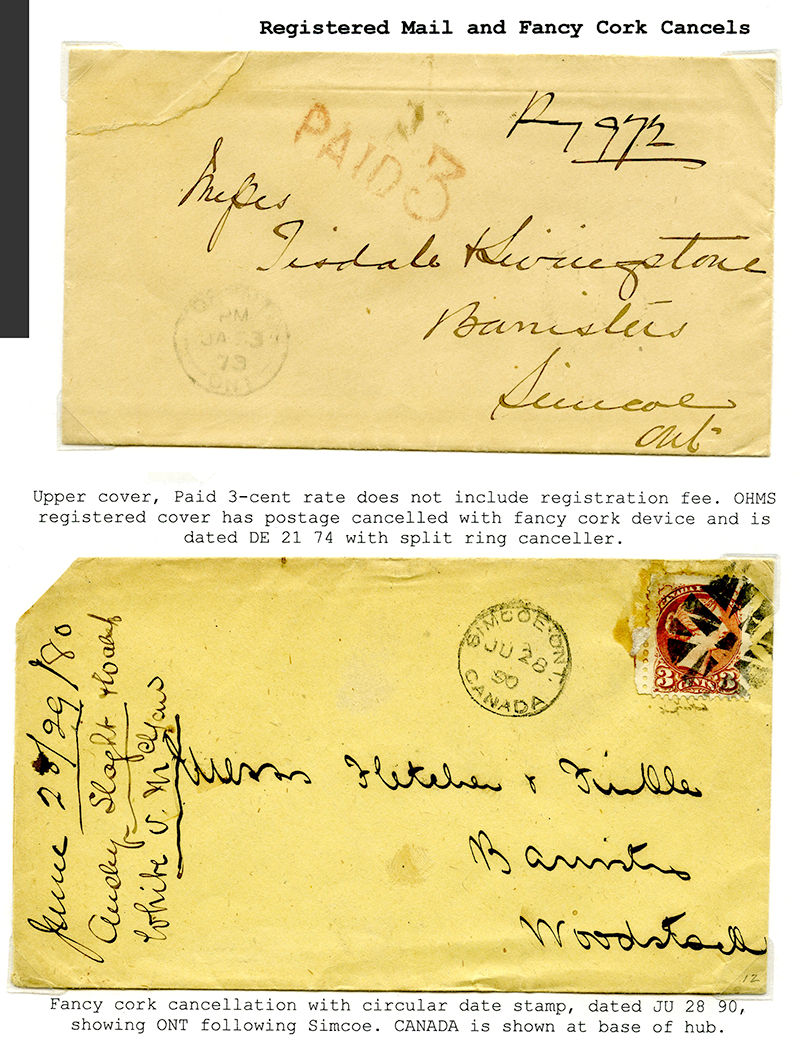 Registered Mail and Fancy Cork Cancels
PAID 3
R 972
Messes
Tisdale & Livingstone
Barristers
Simcoe
Ont
PM
JA 3
73
ONT
Upper cover, Paid 3-cent rate does not include registration fee. OHMS
registered cover has postage cancelled with fancy cork device and is
dated DE 21 74 with split ring canceller.
SIMCOE·ONT.
JU 28
90
CANADA
CANADA
3 CENTS 3
June 28/29/80
Slaght
White v.
Messrs Fletcher & Finkle
Barristers
Woodstock
12
Fancy cork cancellation with circular date stamp, dated JU 28 90,
showing ONT following Simcoe. CANADA is shown at base of hub.